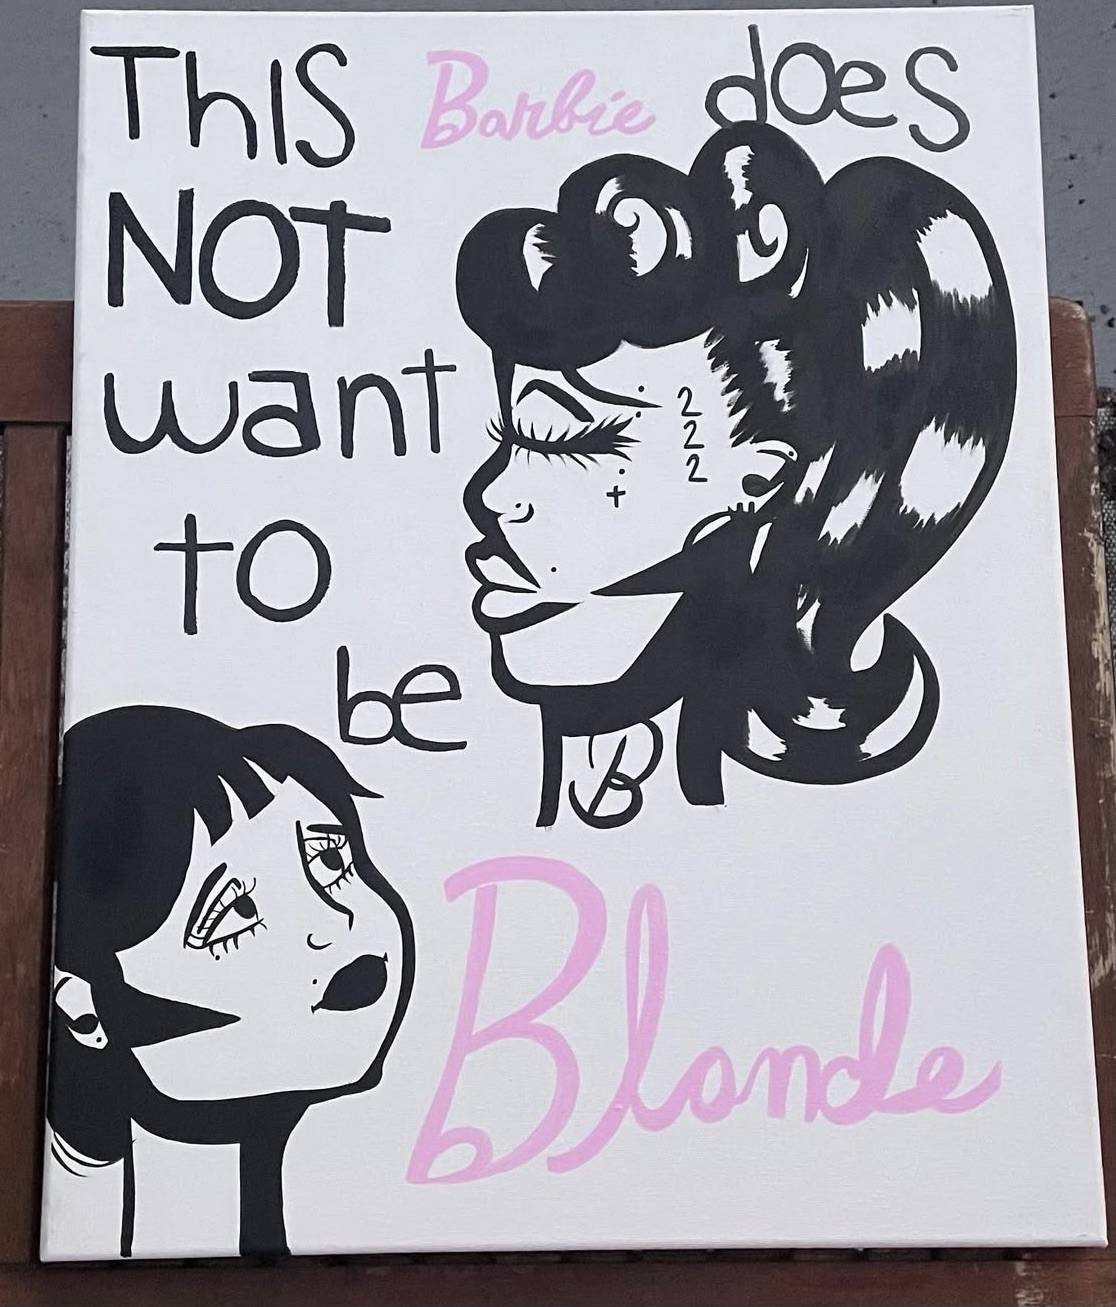 ThIS Barbie does
NOT
want
to
be
Blonde
2
2
2
B